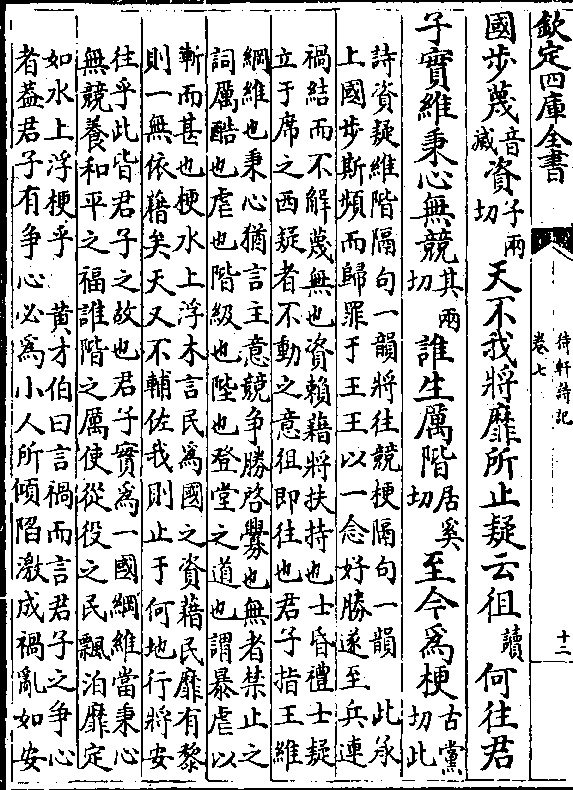 欽定四庫全書
待軒詩記
卷七
十二
國步蔑音滅資子兩切天不我將靡所止疑云徂讀何往君
子實維秉心無競其兩切誰生厲階居奚切至今為梗古黨切此
詩資疑維階隔句一韻將往競梗隔句一韻　此承
上國步斯頻而歸罪于王王以一念好勝遂至兵連
禍結而不解蔑無也資賴藉將扶持也士昏禮士疑
立于席之西疑者不動之意徂即往也君子指王維
綱維也秉心猶言主意競爭勝啓釁也無者禁止之
詞厲酷也虐也階級也陛也登堂之道也謂暴虐以
漸而甚也梗水上浮木言民為國之資藉民靡有黎
則一無依藉矣天又不輔佐我則止于何地行將安
往乎此皆君子之故也君子實為一國綱維當秉心
無競養和平之福誰階之厲使從役之民飄泊靡定
如水上浮梗乎　黄才伯曰言禍而言君子之争心
者葢君子有争心必為小人所傾陷激成禍亂如安